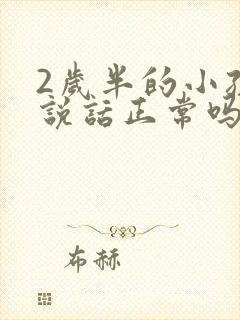 2歲半的小
說話正常嗎
布赫